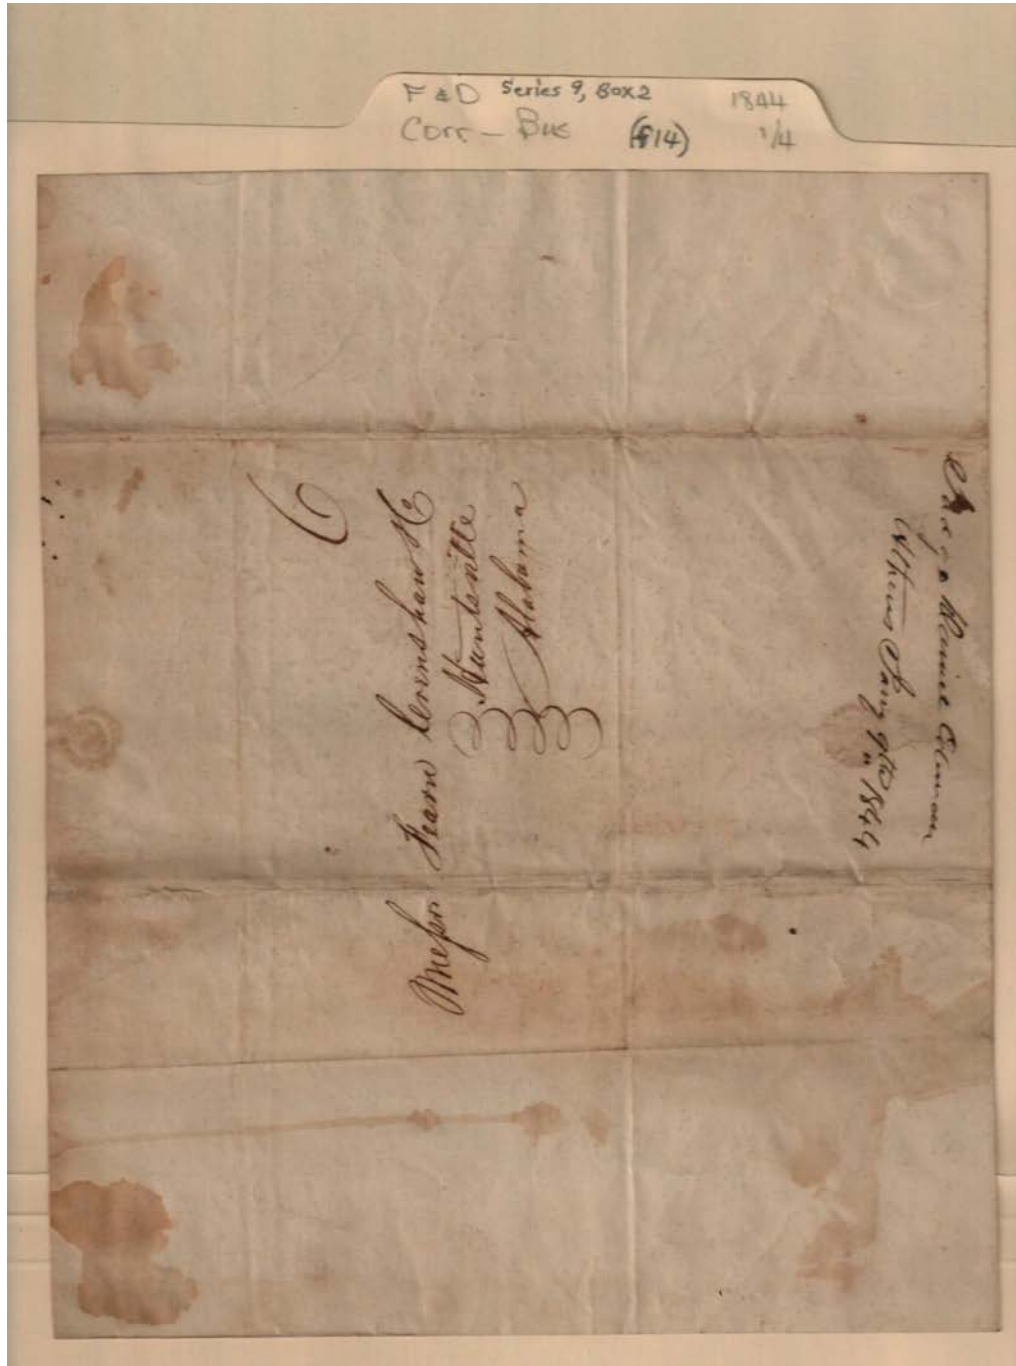 F & D Series 9, Box 2 1844
Corr - Bus (f14) 1/4
6
Messrs Fearn Crenshaw & Co
Huntsville
Alabama
Daniel Coleman
Athens Jany 9th 1844